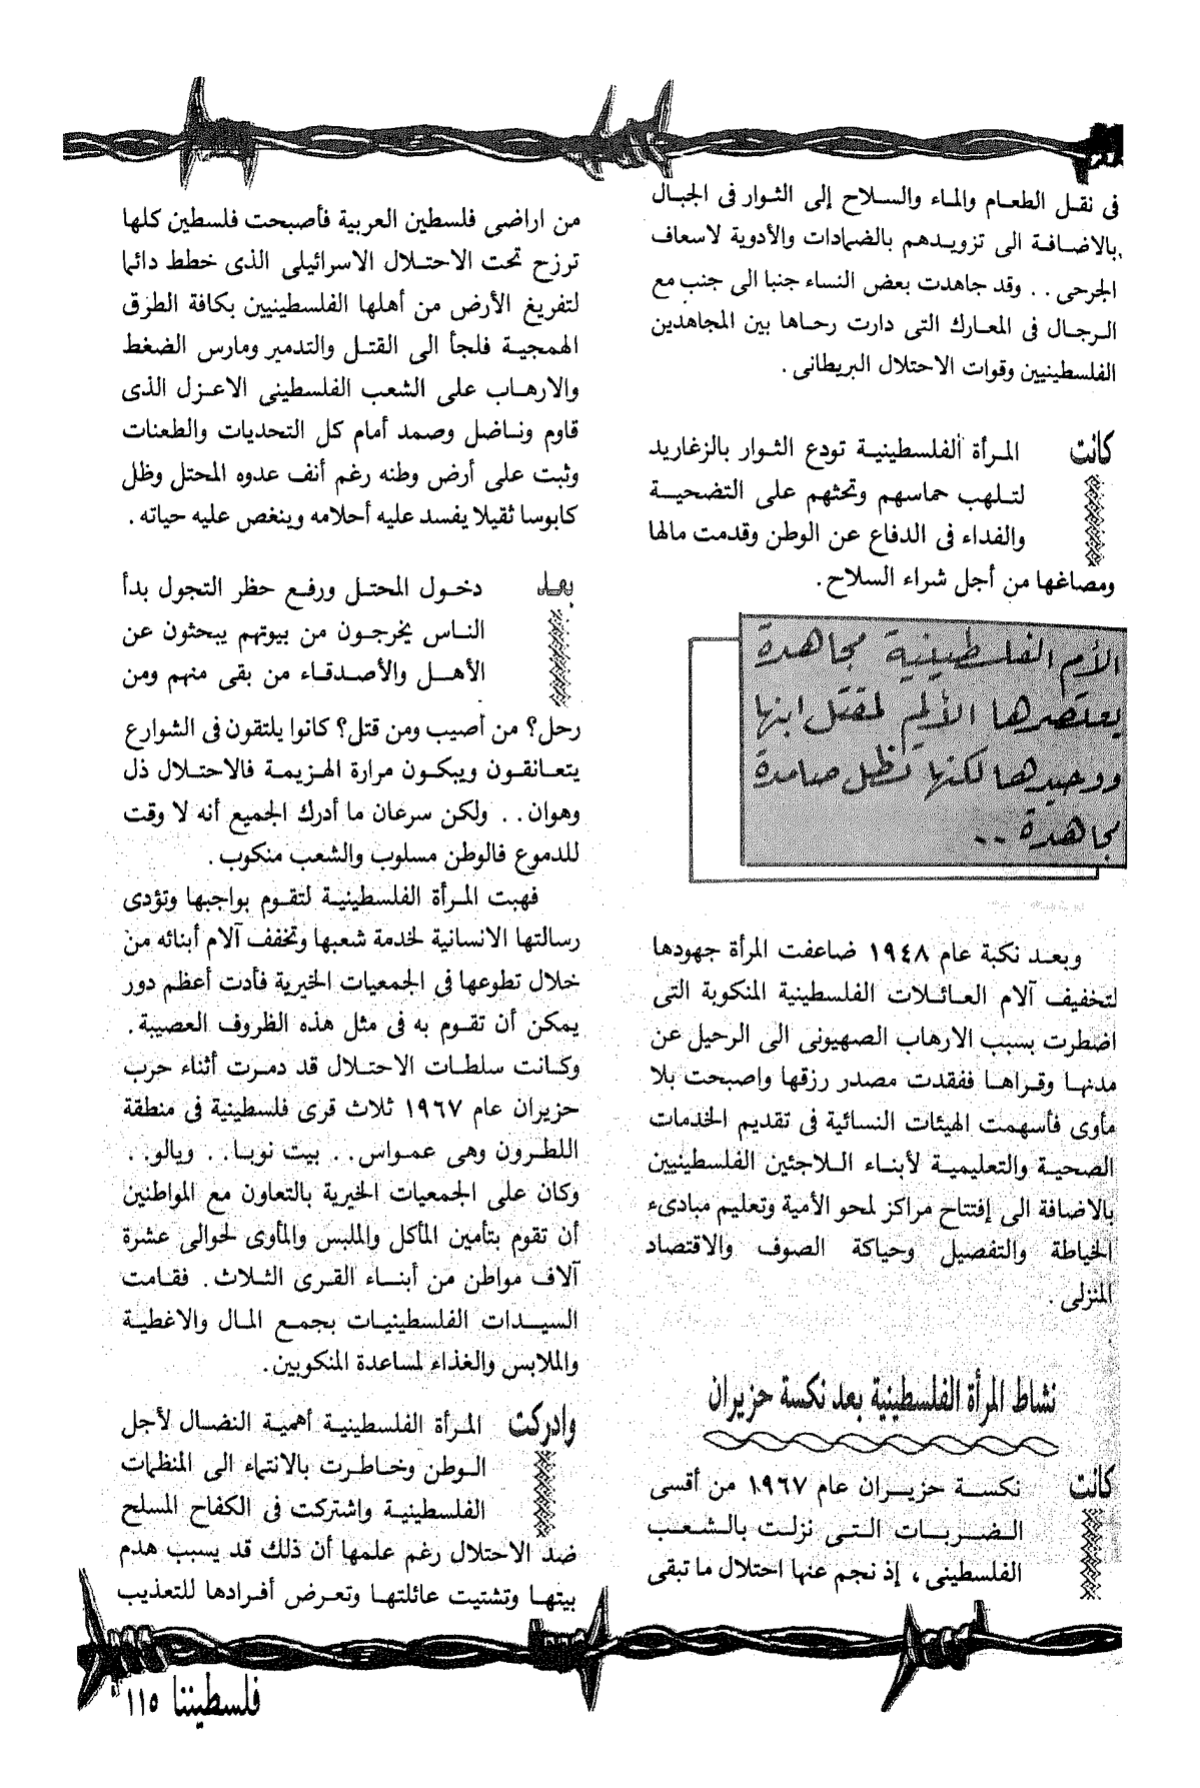 فى نقـل الطعـام والمـاء والسـلاح إلى الثـوار فى الجبال
بالاضـافـة الى تزويـدهم بالضمادات والأدوية لاسعاف
الجرحى . . وقد جاهدت بعض النساء جنبا الى جنب مع
الـرجـال فى المعـارك التى دارت رحـاها بين المجاهدين
الفلسطينيين وقوات الاحتلال البريطانى .
كانت المـرأة الفلسطينيـة تودع الثـوار بالزغاريد
لتـلهب حماسهم وتحثهم على التضحيـة
والفداء فى الدفاع عن الوطن وقدمت مالها
ومصاغها من أجل شراء السلاح .
الأم الفلسطينية مجاهدة
يعتصرها الألم لمقتل ابنها
ووحيدها لكنها تظل صامدة
مجاهدة ..
وبعـد نكبة عام ١٩٤٨ ضاعفت المرأة جهودها
لتخفيف آلام العـائـلات الفلسطينية المنكوبة التى
اضطرت بسبب الارهاب الصهيونى الى الرحيل عن
مدنهـا وقـراهـا ففقدت مصدر رزقها واصبحت بلا
مأوى فأسهمت الهيئات النسائية فى تقديم الخدمات
الصحيـة والتعليميـة لأبنـاء الـلاجئين الفلسطينيين
بالاضافة الى إفتتاح مراكز لمحو الأمية وتعليم مبادىء
الخياطة والتفصيل وحياكة الصوف والاقتصاد
المنزلى .
نشاط المرأة الفلسطينية بعد نكسة حزيران
كانت نكسـة حزيـران عام ١٩٦٧ من أقسى
الـضـربـات الـتـى نزلـت بالـشـعـب
الفلسطينى ، إذ نجم عنها احتلال ما تبقى
من اراضى فلسطين العربية فأصبحت فلسطين كلها
ترزح تحت الاحتـلال الاسرائيلى الذى خطط دائما
لتفريغ الأرض من أهلها الفلسطينيين بكافة الطرق
الهمجيـة فلجأ الى القتـل والتدمير ومارس الضغط
والارهـاب على الشعب الفلسطينى الاعـزل الذى
قاوم ونـاضل وصمد أمام كل التحديات والطعنات
وثبت على أرض وطنه رغم أنف عدوه المحتل وظل
كابوسا ثقيلا يفسد عليه أحلامه وينغص عليه حياته .
بعد دخـول المحتـل ورفـع حظر التجول بدأ
النـاس يخرجـون من بيوتهم يبحثون عن
الأهـل والأصـدقـاء من بقى منهم ومن
رحل؟ من أصيب ومن قتل؟ كانوا يلتقون فى الشوارع
يتعـانقـون ويبكـون مرارة الهـزيمـة فالاحتـلال ذل
وهوان . . ولكن سرعان ما أدرك الجميع أنه لا وقت
للدموع فالوطن مسلوب والشعب منكوب .
فهبت المـرأة الفلسطينيـة لتقـوم بواجبها وتؤدى
رسالتها الانسانية لخدمة شعبها وتخفف آلام أبنائه من
خلال تطوعها فى الجمعيات الخيرية فأدت أعظم دور
يمكن أن تقـوم به فى مثل هذه الظروف العصيبة .
وكـانت سلطـات الاحتـلال قد دمـرت أثناء حرب
حزيران عام ١٩٦٧ ثلاث قرى فلسطينية فى منطقة
اللطـرون وهى عمـواس . . بيت نوبـا . . ويالو . .
وكان على الجمعيات الخيرية بالتعاون مع المواطنين
أن تقوم بتأمين المأكل والملبس والمأوى لحوالى عشرة
آلاف مواطن من أبنـاء القـرى الثـلاث . فقـامت
السيـدات الفلسطينيـات بجمـع المـال والاغطيـة
والملابس والغذاء لمساعدة المنكوبين .
وادركت المـرأة الفلسطينيـة أهميـة النضـال لأجل
الـوطن وخـاطـرت بالانتماء الى المنظمات
الفلسطينيـة واشتركت فى الكفاح المسلح
ضد الاحتلال رغم علمها أن ذلك قد يسبب هدم
بيتهـا وتشتيت عائلتهـا وتعـرض أفـرادها للتعذيب
فلسطيننا ١١٥